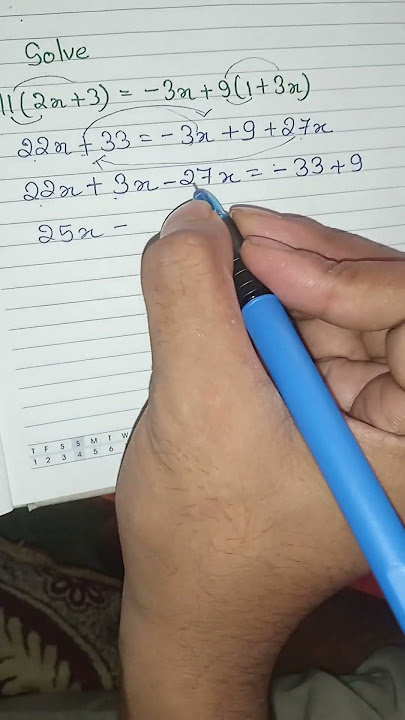 Solve
11(2x+3) = -3x+9(1+3x)
22x + 33 = -3x +9 +27x
22x + 3x -27x = -33+9
25x -
T F S S M T W
1 2 3 4 5 6